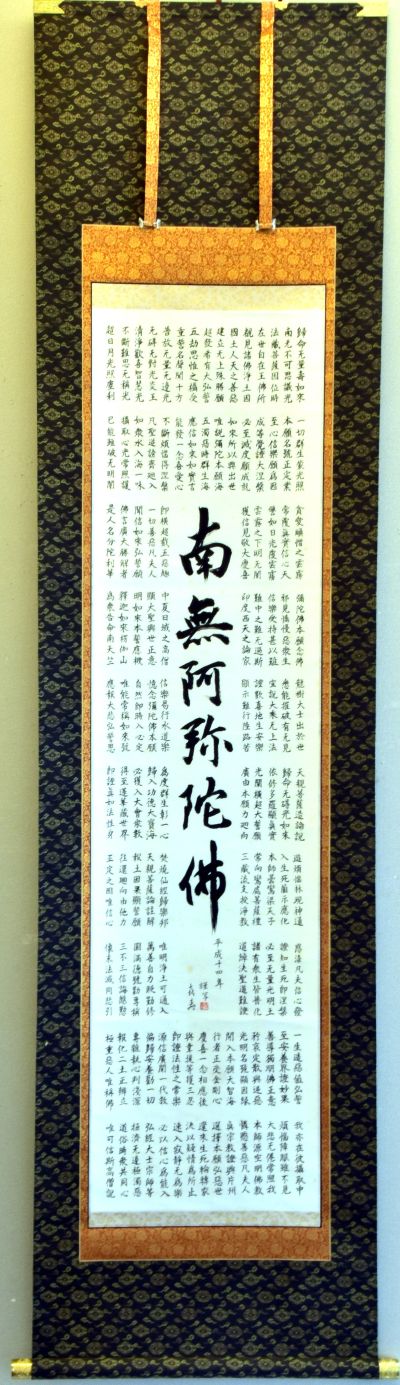 歸命无量壽如來
南无不可思議光
法藏菩薩因位時
在世自在王佛所
覩見諸佛淨土因
國土人天之善惡
建立无上殊勝願
超發希有大弘誓
五劫思惟之攝受
重誓名聲聞十方
普放无量无邊光
无碍无對光炎王
清淨歡喜智慧光
不斷難思无稱光
超日月光照塵刹
一切群生蒙光照
本願名號正定業
至心信樂願為因
成等覺證大涅槃
必至滅度願成就
如來所以興出世
唯說彌陀本願海
五濁惡時群生海
應信如來如實言
能發一念喜愛心
不斷煩惱得涅槃
凡聖逆謗齊迴入
如衆水入海一味
攝取心光常照護
已能雖破无明闇
貪愛瞋憎之雲霧
常覆真實信心天
譬如日光覆雲霧
雲霧之下明无闇
獲信見敬大慶喜
即橫超截五惡趣
一切善惡凡夫人
聞信如來弘誓願
佛言廣大勝解者
是人名分陀利華
彌陀佛本願念佛
邪見憍慢惡衆生
信樂受持甚以難
難中之難无過斯
印度西天之論家
中夏日域之高僧
顯大聖興世正意
明如來本誓應機
釋迦如來楞伽山
為衆告命南天竺
龍樹大士出於世
悉能摧破有无見
宣說大乘无上法
證歡喜地生安樂
顯示難行陸路苦
信樂易行水道樂
憶念彌陀佛本願
自然即時入必定
唯能常稱如來號
應報大悲弘誓恩
天親菩薩造論說
歸命无碍光如來
依修多羅顯真實
光闡橫超大誓願
廣由本願力迴向
為度群生彰一心
歸入功德大寶海
必獲入大會衆數
得至蓮華藏世界
即證真如法性身
遊煩惱林現神通
入生死薗示應化
本師曇鸞梁天子
常向鸞處菩薩禮
三藏流支授淨教
焚燒仙經歸樂邦
天親菩薩論註解
報土因果顯誓願
往還迴向由他力
正定之因唯信心
惑染凡夫信心發
證知生死即涅槃
必至无量光明土
諸有衆生皆普化
道綽決聖道難證
唯明淨土可通入
萬善自力貶勤修
圓滿德號勸專稱
三不三信誨慇懃
像末法滅同悲引
一生造惡值弘誓
至安養界證妙果
善導獨明佛正意
矜哀定散與逆惡
光明名號顯因縁
開入本願大智海
行者正受金剛心
慶喜一念相應後
與韋提等獲三忍
即證法性之常樂
源信廣開一代教
偏歸安養勸一切
專雜執心判淺深
報化二土正辨立
極重惡人唯稱佛
我亦在彼攝取中
煩惱障眼雖不見
大悲无倦常照我
本師源空明佛教
憐愍善惡凡夫人
真宗教證興片州
選擇本願弘惡世
還來生死輪轉家
決以疑情為所止
速入寂靜无為樂
必以信心為能入
弘經大士宗師等
拯濟无邊極濁惡
道俗時衆共同心
唯可信斯高僧說
南無阿弥陀佛
平成十四年